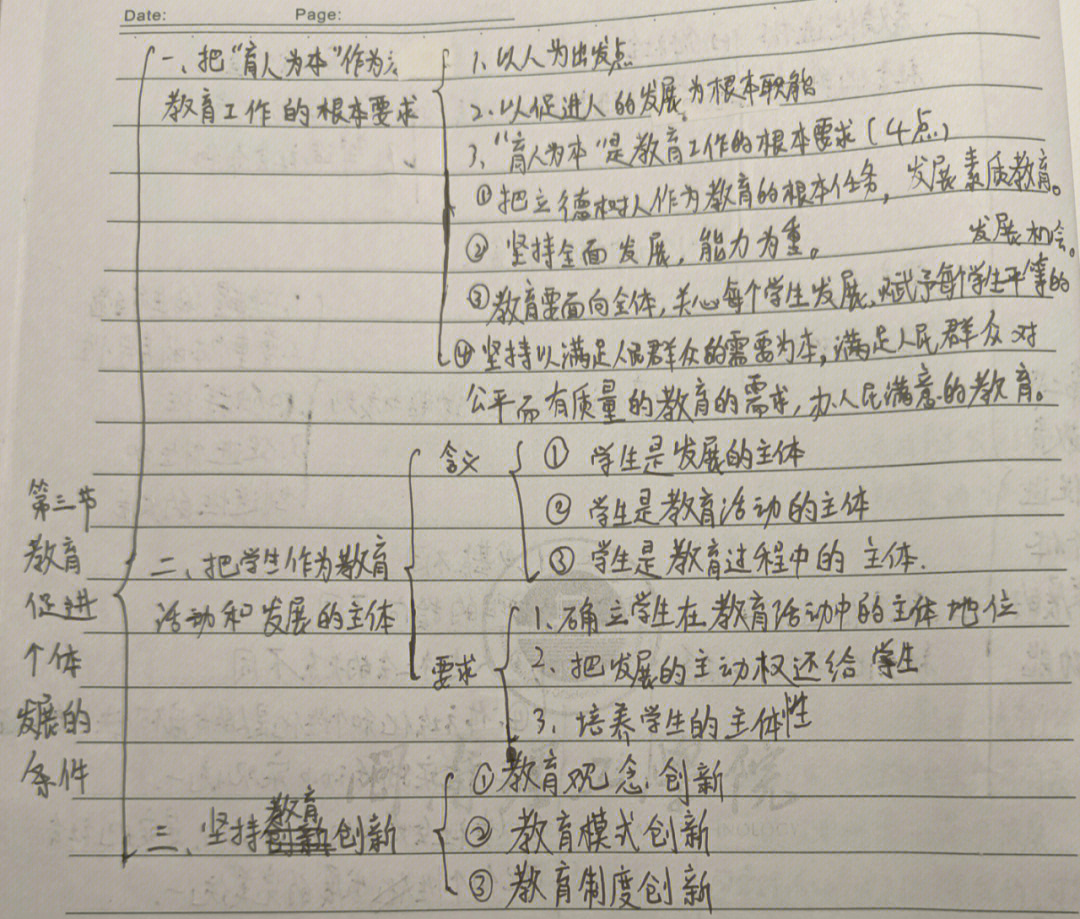 Date:
Page:
一、把“育人为本”作为
教育工作的根本要求
1、以人为出发点
2、以促进人的发展为根本职能
3、“育人为本”是教育工作的根本要求(4点)
①把立德树人作为教育的根本任务，发展素质教育。
②坚持全面发展，能力为重。
发展机会。
③教育要面向全体，关心每个学生发展，赋予每个学生平等的
④坚持以满足人民群众的需要为本，满足人民群众对
公平而有质量的教育的需求，办人民满意的教育。
第三节
教育
促进
个体
发展的
条件
二、把学生作为教育
活动和发展的主体
含义
①学生是发展的主体
②学生是教育活动的主体
③学生是教育过程中的主体.
要求
1、确立学生在教育活动中的主体地位
2、把发展的主动权还给学生
3、培养学生的主体性
三、坚持教育创新
①教育观念创新
②教育模式创新
③教育制度创新